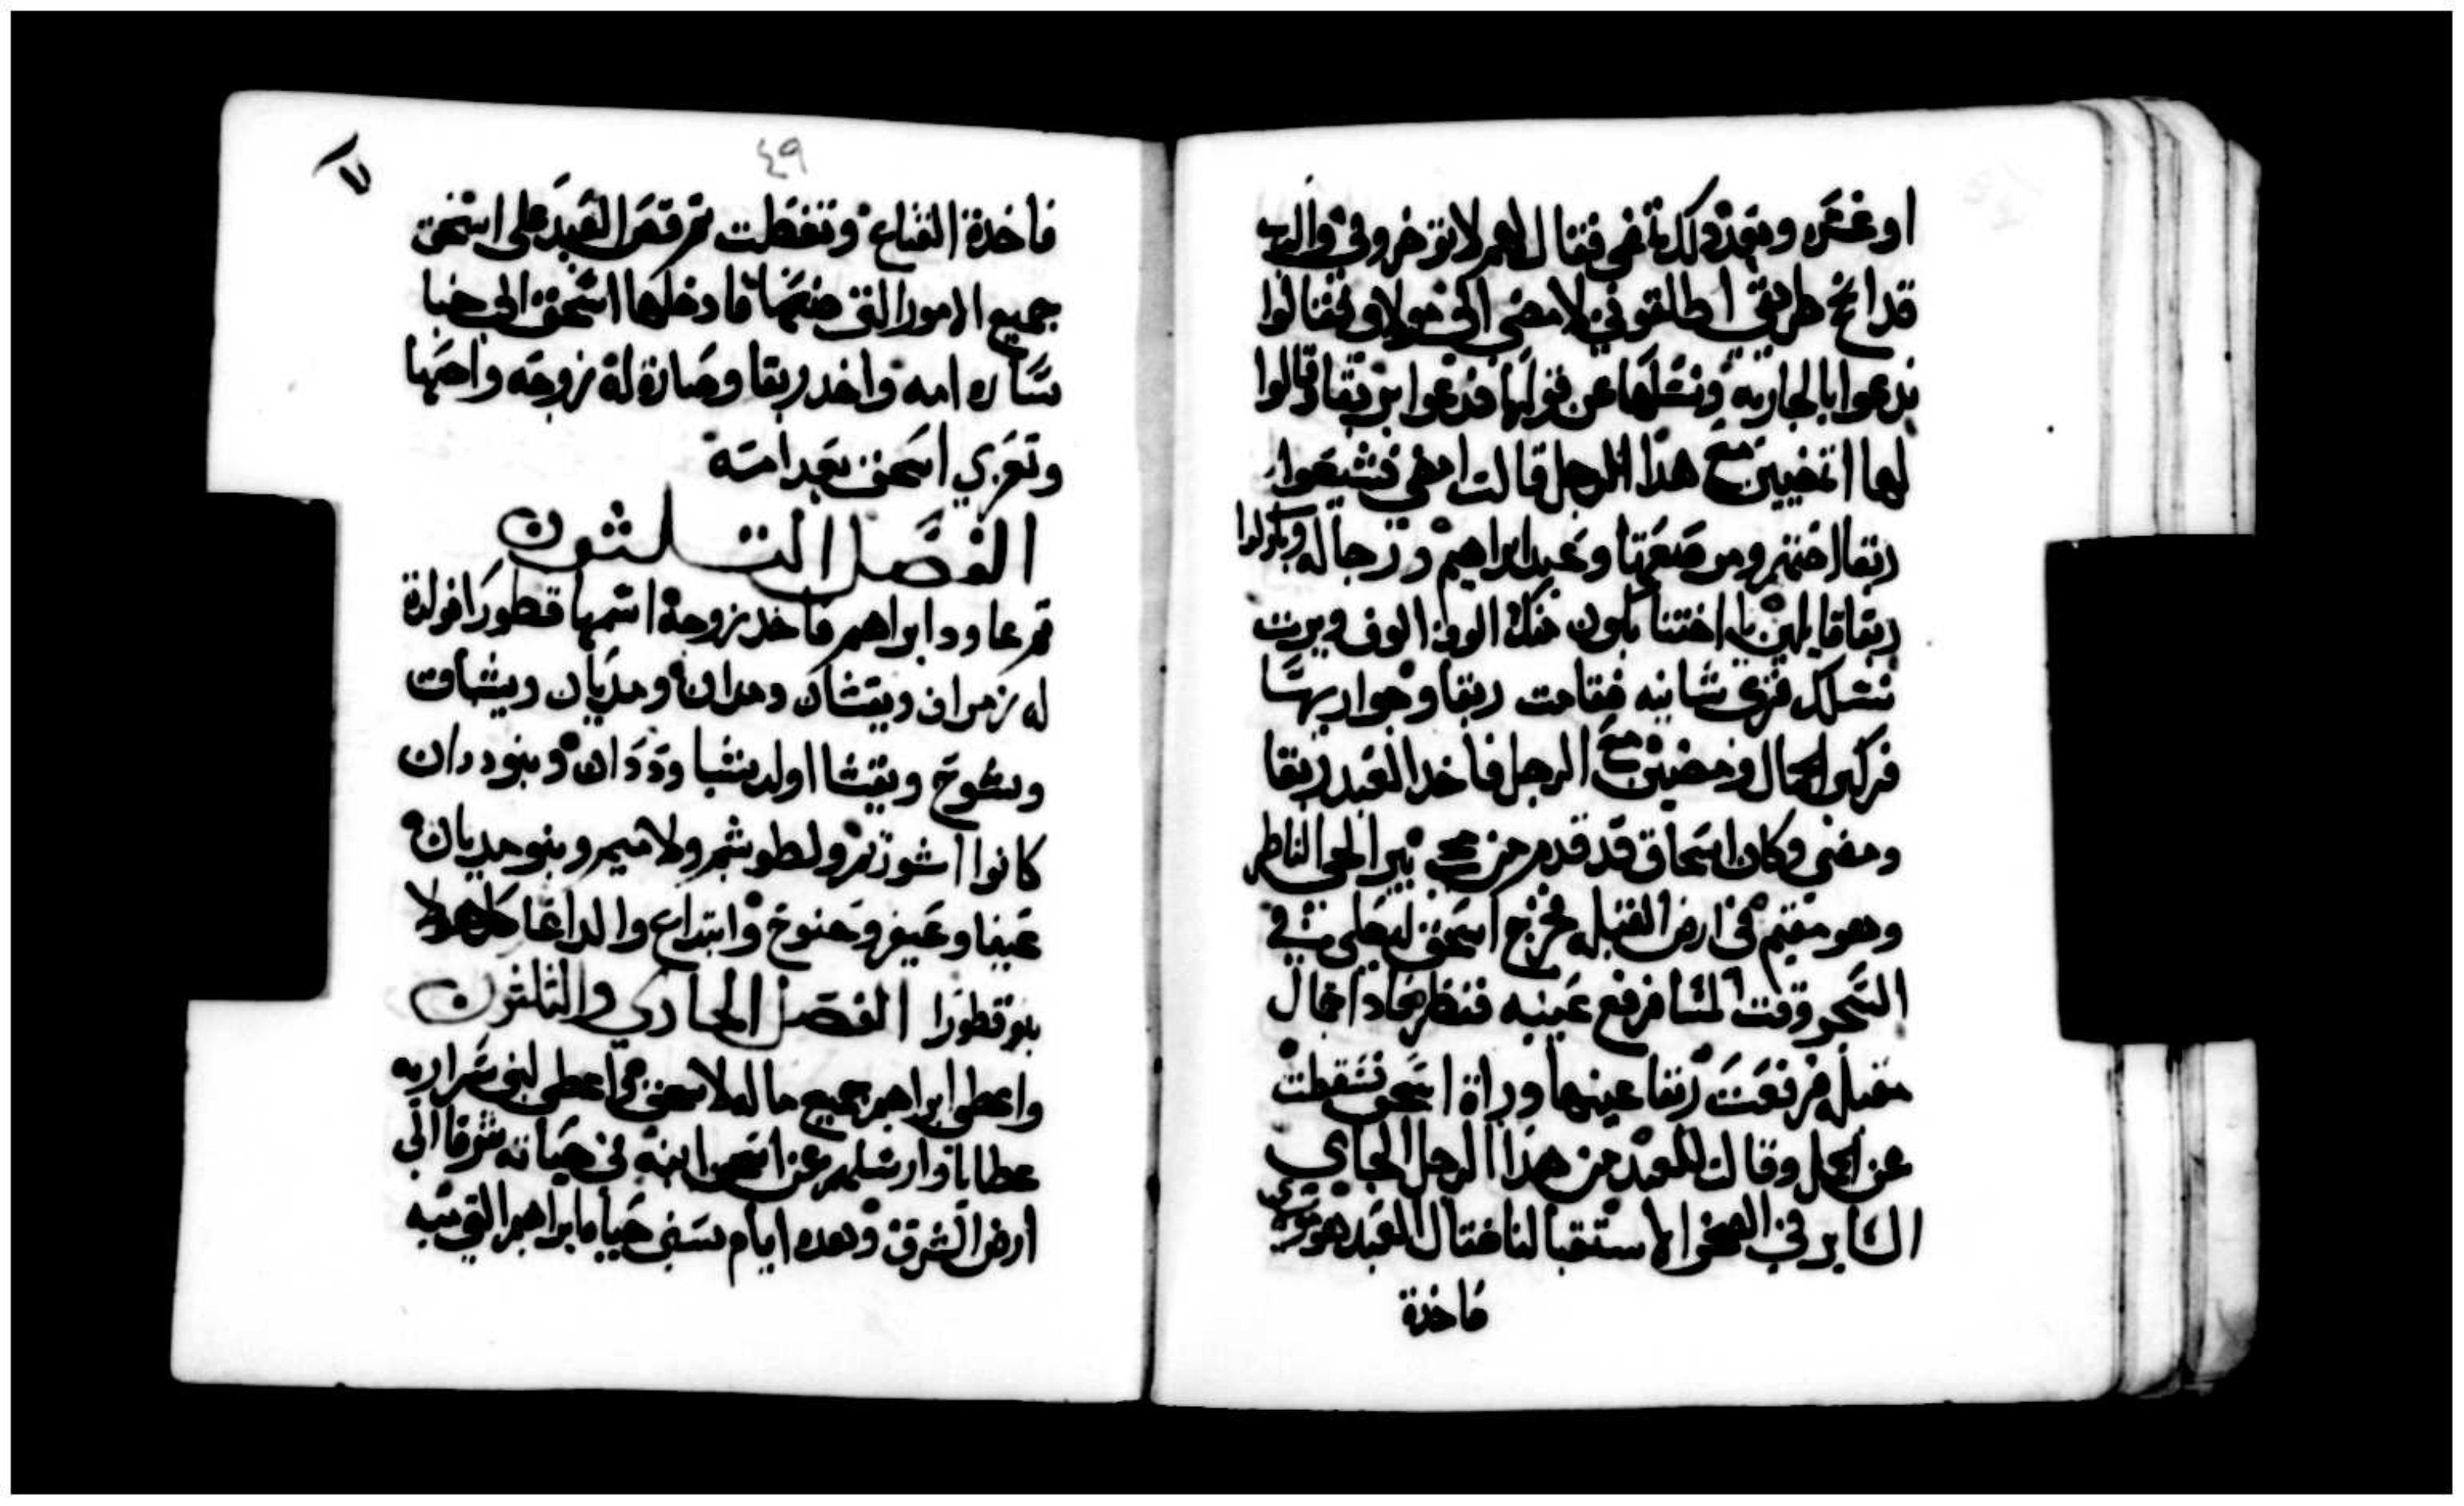 او عشره وبعد ذلك تمضي فقال لهم لا توخروني والرب
قد انجح طريقي اطلقوني لامضي الى مولاي فقالوا
ندعوا بالجاريه ونسلها عن قولها فدعوا بربقا وقالوا
لها اتمضيين مع هذا الرجل قالت امضي فشيعوا
ربقا اختهم ومرضعتها وعبد ابراهيم ورجاله وباركوا
ربقا قايلين يا اختنا يكون منك الوف الوف ويرث
نسلك قري شانيه فقامت ربقا وجواريها
فركبن الجمال ومضين مع الرجل فاخد العبد ربقا
ومضي وكان اسحاق قد قدم من بير الحي الناظر
وهو مقيم في ارض القبله فخرج اسحق ليصلي في
الصحرا وقت المسا فرفع عينيه فنظر فاذا جمال
مقبله فرفعت ربقا عينيها وراة اسحق فسقطت
عن الجمل وقالت للعبد من هذا الرجل الجاي
الساير في الصحرا لاستقبالنا فقال العبد هو مولاي
فاخدة
٤٩
فاخدة القناع وتغطت ثم قص العبد على اسحق
جميع الامور التي صنعها فادخلها اسحق الى خبا
ساره امه واخد ربقا وصارة له زوجه واحبها
وتعزي اسحق بعد امه
الفصل الثلثون
ثم عاود ابراهيم فاخد زوجة اسمها قطورا فولدة
له زمران ويقشان ومدان ومديان ويشباق
وشوح ويقشا اولد شبا وددان وبنو ددان
كانوا اشوريم ولطوشيم ولاميم وبنو مديان
عيفا وعيفر وحنوخ وابيداع والداعا كل هولا
بنو قطورا الفصل الحادي والثلثون
واعطى ابراهيم جميع ماله لاسحق واعطى لبني سراريه
عطايا وارسلهم عن اسحق ابنه في حياته شرقا الى
ارض الشرق وهده ايام سني حياة ابراهيم التي